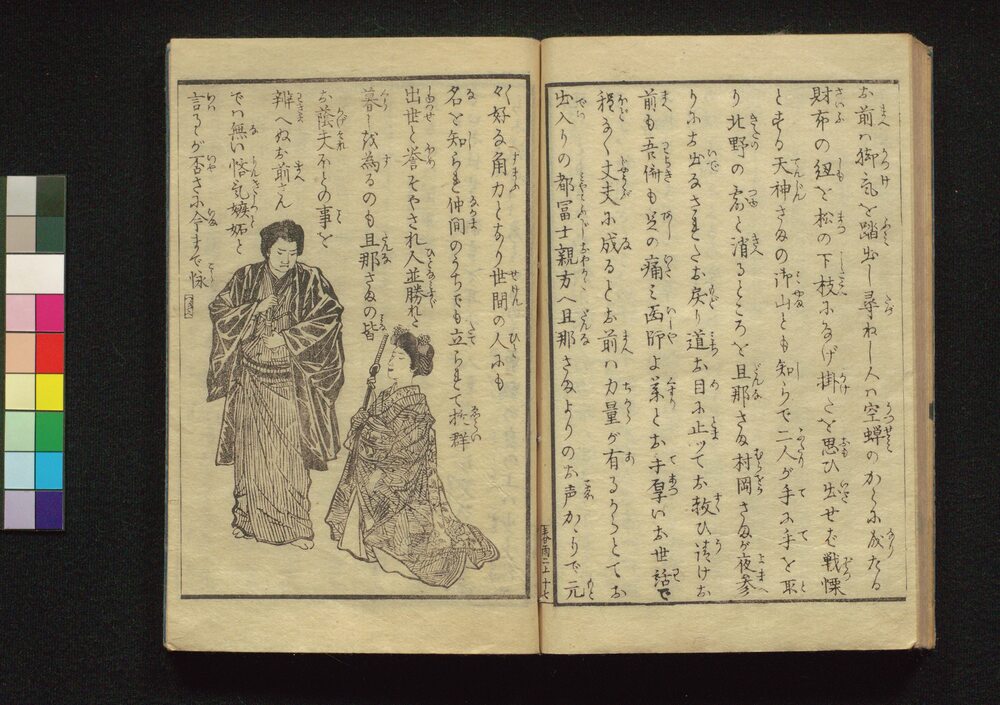 お前ハ御気を踏出し尋ねし人ハ空蝉のからに成たる
財布の紐を松の下枝になげ掛たを思ひ出せば戦慄
とする天神さまの御山とも知らで二人が手に手を取
り北野の露と消るところを旦那さま村岡さまが夜参
りにお出なされたお戻り道お目に止ッてお救ひ請けお
前も吾儕も足の痛ミ医師よ薬とお手厚いお世話で
程なく丈夫に成るとお前ハ力量が有るからとてお
出入りの都冨士親方へ旦那さまよりのお声がゝりで元
々好な角力となり世間の人にも
名を知られ仲間のうちでも立られて抜群
出世と誉そやされ人並勝れた
暮しを為るのも旦那さまの皆
お蔭夫ほどの事を
辨へぬお前さん
でハ無い悋気嫉妬と
言うが否さに今まで怺